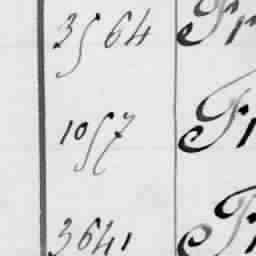 3564 Fr
1057 Fr
3641 Fr